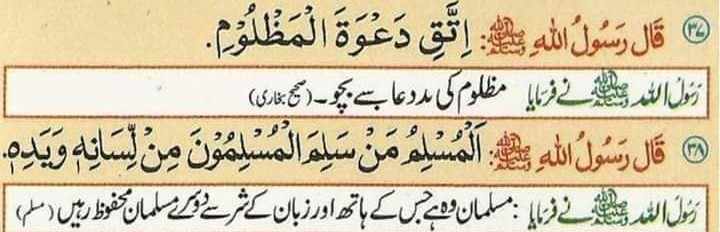 ۳۷ قَالَ رَسُولُ اللهِ ﷺ: اِتَّقِ دَعْوَةَ الْمَظْلُوْمِ.
رَسُولُ اللہ ﷺ نے فرمایا مظلوم کی بددعا سے بچو۔ (صحیح بخاری)
۳۸ قَالَ رَسُولُ اللهِ ﷺ: اَلْمُسْلِمُ مَنْ سَلِمَ الْمُسْلِمُوْنَ مِنْ لِّسَانِهٖ وَيَدِهٖ.
رَسُولُ اللہ ﷺ نے فرمایا: مسلمان وہ ہے جس کے ہاتھ اور زبان کے شر سے دوسرے مسلمان محفوظ رہیں (مسلم)